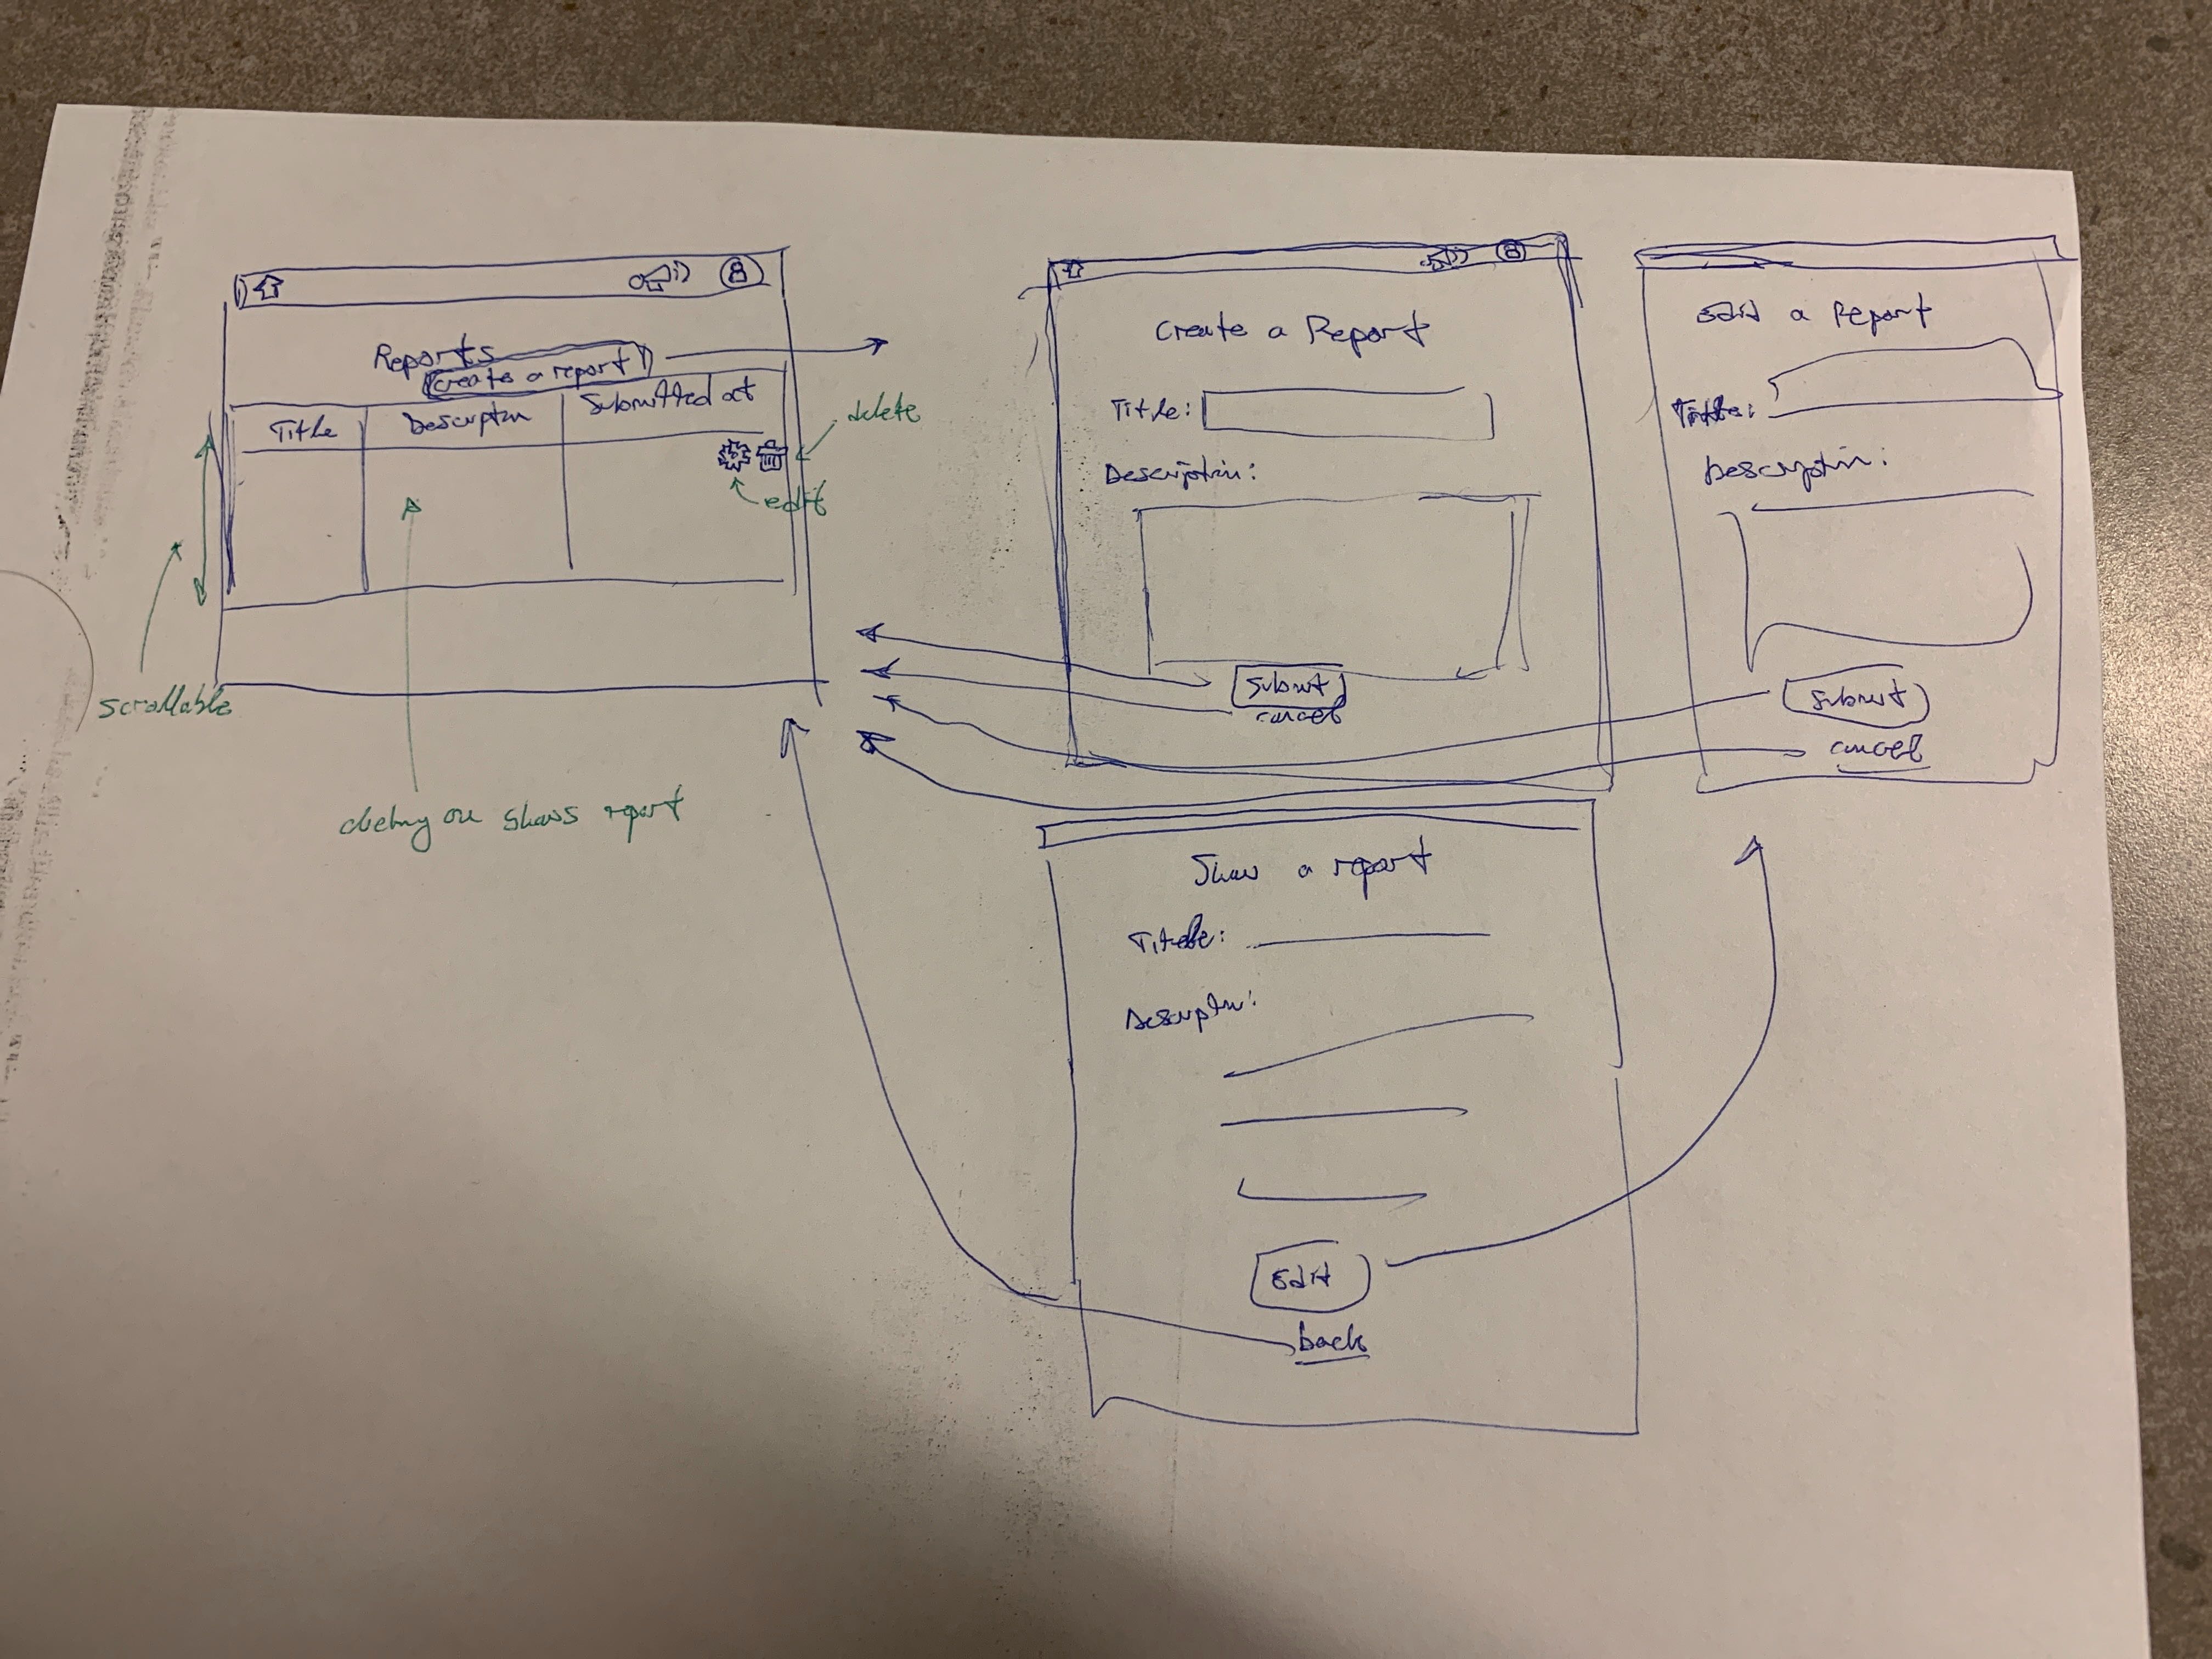 Reports
create a report
Title
Description
Submitted at
delete
edit
scrollable
on shows report
Create a Report
Title:
Description:
Submit
cancel
Edit a Report
Title:
Description:
Submit
cancel
Show a report
Title:
Description:
Edit
back